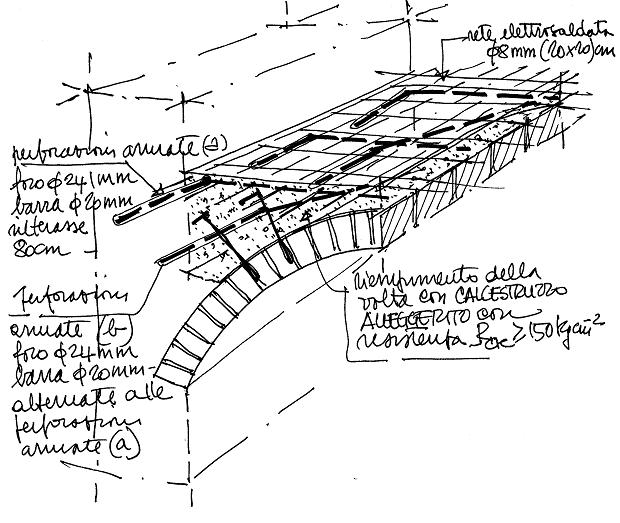 rete elettrosaldata
φ8mm (20x20)cm
perforazioni armate (a)
foro φ24mm
barra φ20mm
interasse
80cm
perforazioni
armate (b)
foro φ24mm
barra φ20mm
alternate alle
perforazioni
armate (a)
riempimento della
volta con CALCESTRUZZO
ALLEGGERITO con
resistenza ≥150kgcm²